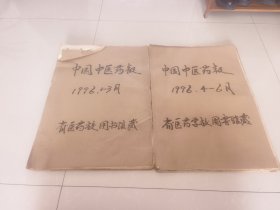 中国中医药报
1998.1-3月
省医药学校图书馆藏
中国中医药报
1998.4-6月
省医药学校图书馆藏